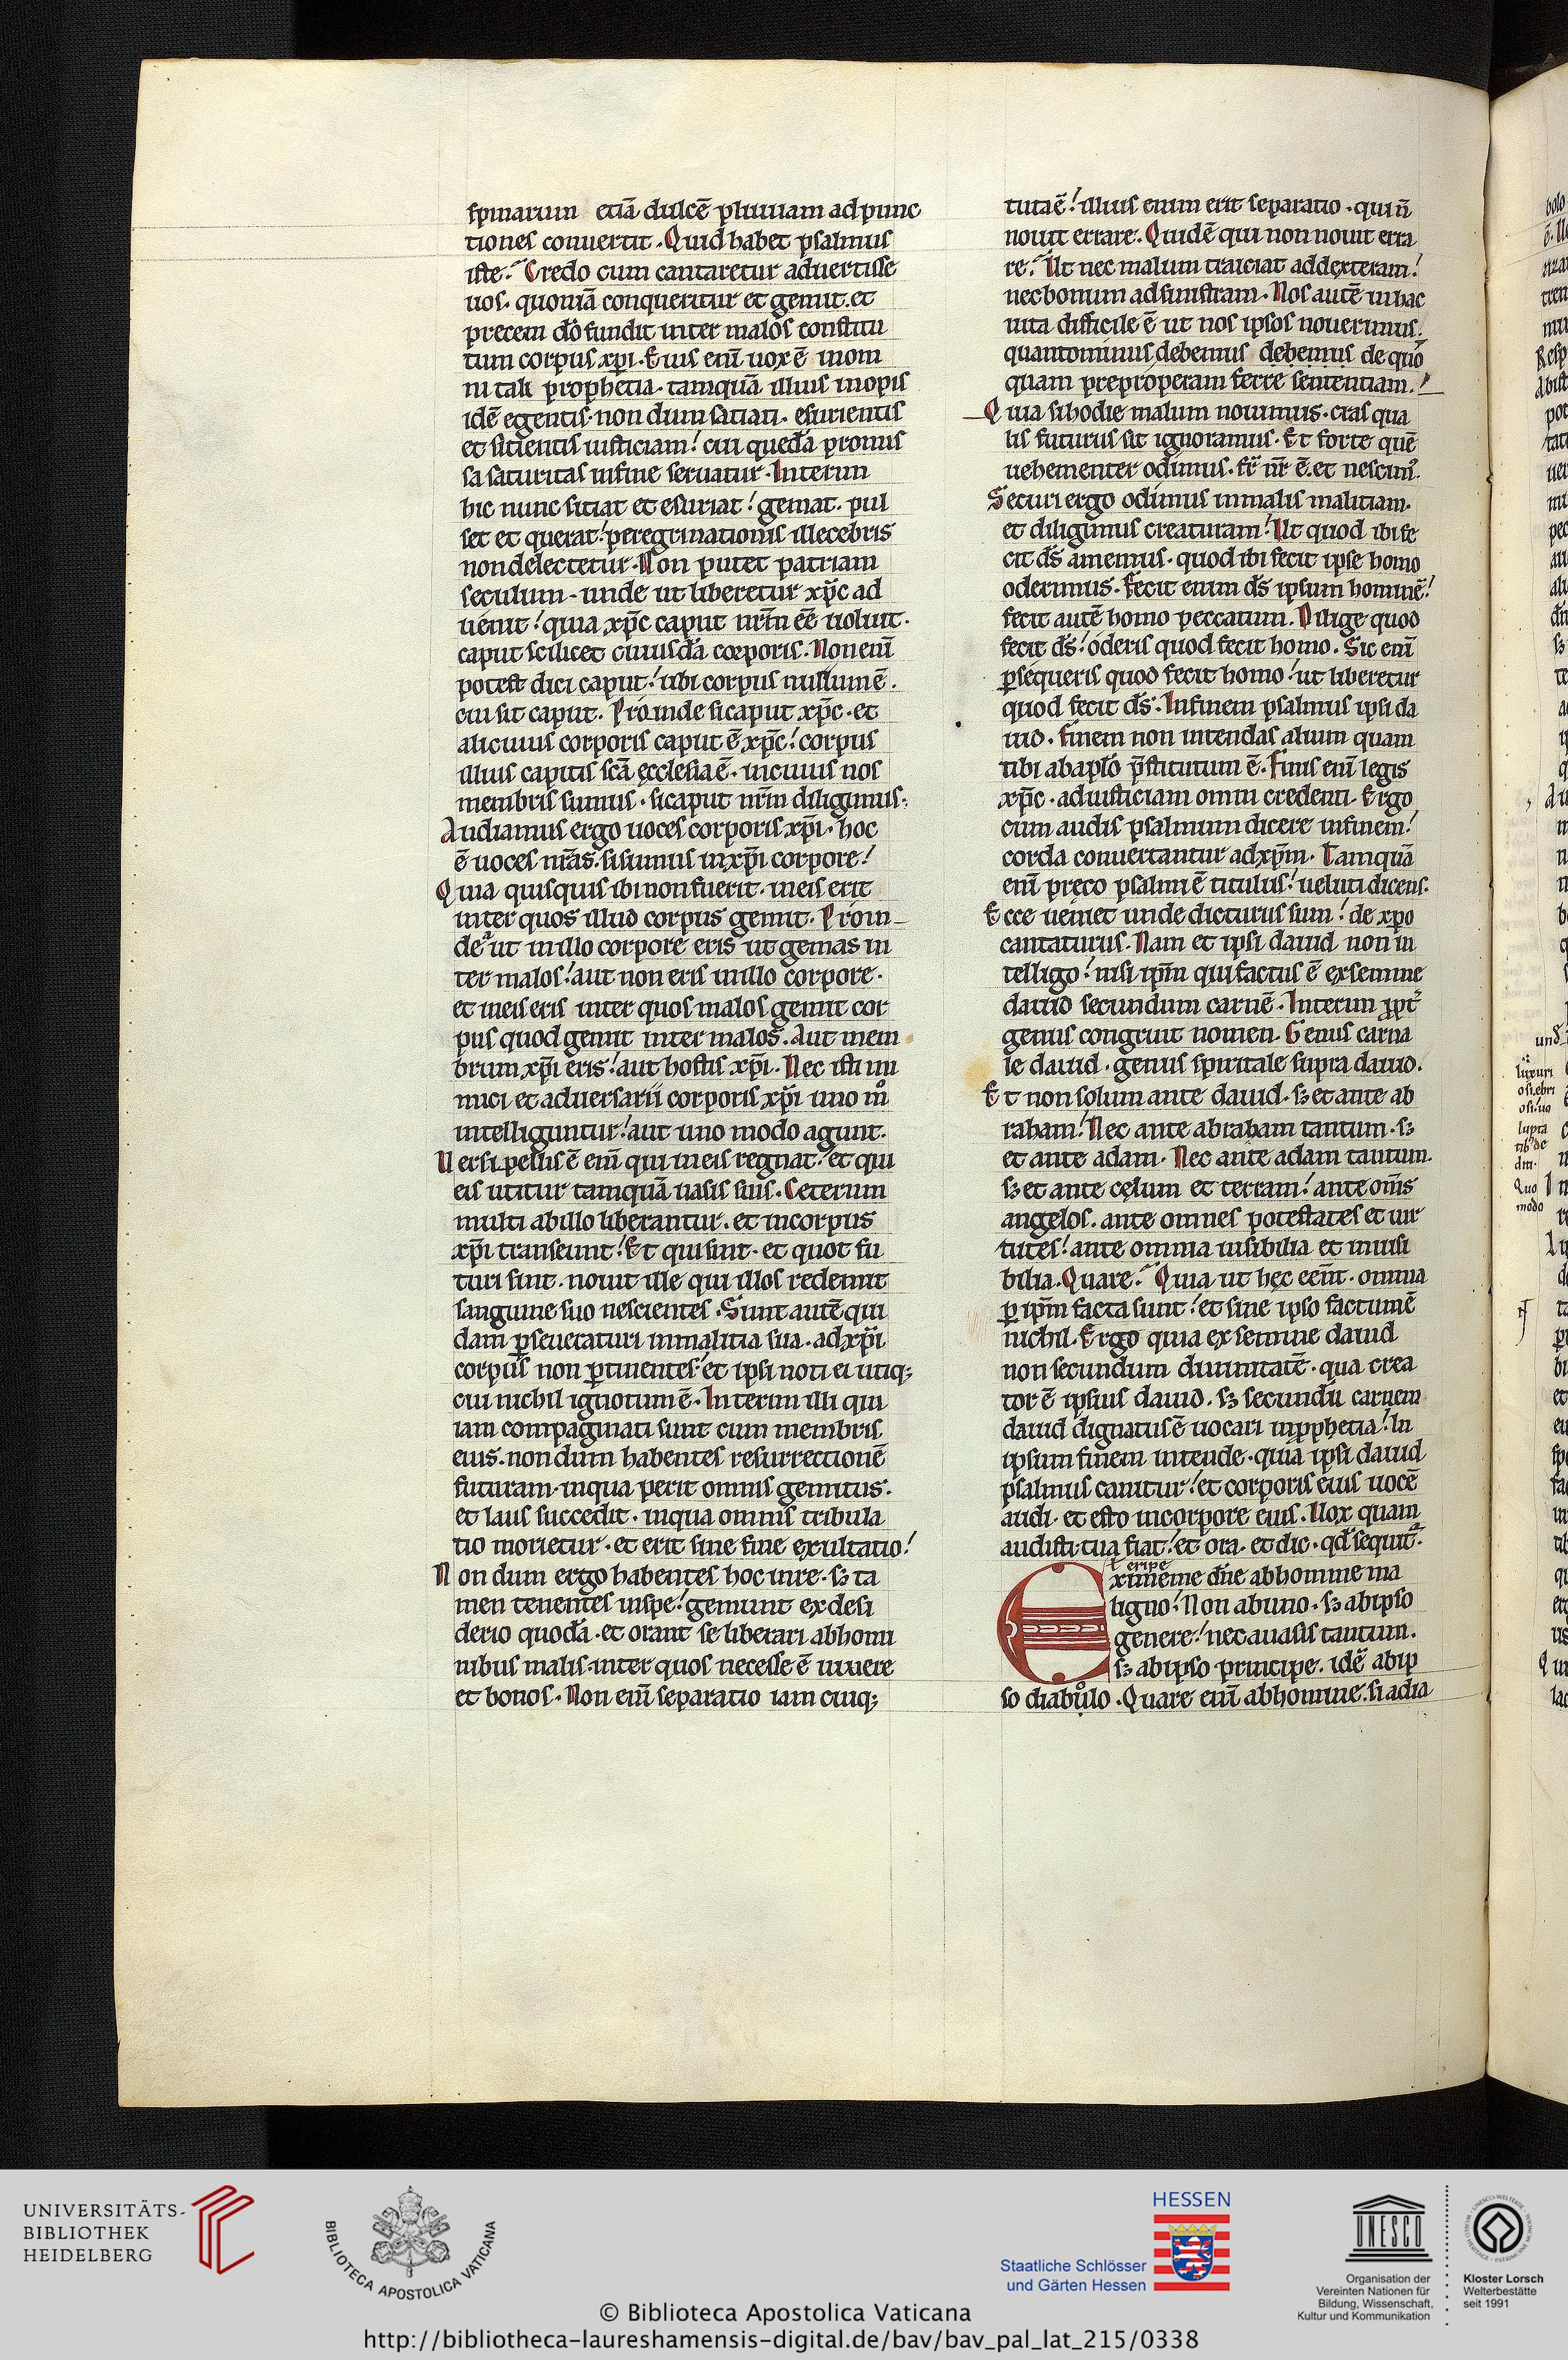 spinarum etiā dulcē pluuiam ad punc
tiones conuertit. Quid habet psalmus
iste? Credo cum cantaretur aduertisse
uos. quoniā conqueritur et gemit. et
precem dō fundit inter malos constitu
tum corpus xp̄i. Eius eni uox ē in om
ni tali prophetia. tamquā illius inopis
idē egentis. non dum satiati. esurientis
et sitientis iusticiam! cui quedā promis
sa saturitas in fine seruatur. Interim
hic nunc sitiat et esuriat! gemat. pul
set et querat! peregrinationis illecebris
non delectetur. Non putet patriam
seculum. unde ut liberetur xp̄c ad
uenit! quia xp̄c caput nr̄m eē uoluit.
caput scilicet cuiusdā corporis. Non enī
potest dici caput! ubi corpus nullum ē.
cui sit caput. Proinde si caput xp̄c. et
alicuius corporis caput ē xp̄c! corpus
illius capitis sc̄a ęcclesia ē. in cuius nos
membris sumus. si caput nr̄m diligimus.
Audiamus ergo uoces corporis xp̄i. hoc
ē uoces nr̄as. si sumus in xp̄i corpore!
Quia quisquis ibi non fuerit. in eis erit
inter quos illud corpus gemit. Proin
de aut in illo corpore eris ut gemas in
ter malos! aut non eris in illo corpore.
et in eis eris inter quos malos gemit cor
pus quod gemit inter malos. Aut mem
brum xp̄i eris! aut hostis xp̄i. Nec isti ini
mici et aduersarii corporis xp̄i uno mo
intelliguntur! aut uno modo agunt.
Uersipellis ē enī qui in eis regnat! et qui
eis utitur tamquā uasis suis. Ceterum
multi ab illo liberantur. et in corpus
xp̄i transeunt! Et qui sint. et quot fu
turi sint. nouit ille qui illos redemit
sanguine suo nescientes. Sunt autē qui
dam p̱seueraturi in malitia sua. ad xp̄i
corpus non p̱tinentes! et ipsi noti ei utiq;
cui nichil ignotum ē. Interim illi qui
iam compaginati sunt cum membris
eius. non dum habentes resurrectionē
futuram. in qua perit omnis gemitus.
et laus succedit. in qua omnis tribula
tio morietur. et erit sine fine exultatio!
Non dum ergo habentes hoc in re. sꝫ ta
men tenentes in spe! gemunt ex desi
derio quodā. et orant se liberari ab homi
nibus malis. inter quos necesse ē uiuere
et bonos. Non enī separatio iam cuiq;
tuta ē! illius enim erit separatio. qui n̄
nouit errare. Quidē qui non nouit erra
re? Ut nec malum traiciat ad dexteram!
nec bonum ad sinistram. Nos autē in hac
uita difficile ē ut nos ipsos nouerimus.
quantominus debemus debemus de quo
quam preproperam ferre sententiam.
Quia si hodie malum nouimus. cras qua
lis futurus sit ignoramus. Et forte quē
uehementer odimus. fr̄ nr̄ ē. et nescim̄.
Securi ergo odimus in malis malitiam.
et diligimus creaturam! Ut quod ibi fe
cit ds̄ amemus. quod ibi fecit ipse homo
oderimus. Fecit enim ds̄ ipsum hominē!
fecit autē homo peccatum. Dilige quod
fecit ds̄! oderis quod fecit homo. Sic enī
p̱sequeris quod fecit homo! ut liberetur
quod fecit ds̄. In finem psalmus ipsi da
uid. Finem non intendas alium quam
tibi ab apl̄o p̄stitutum ē. Finis enī legis
xp̄c. ad iusticiam omni credenti. Ergo
cum audis psalmum dicere in finem!
corda conuertantur ad xp̄m. Tamquā
enī pręco psalmi ē titulus! ueluti dicens.
Ecce ueniet unde dicturus sum! de xp̄o
cantaturus. Nam et ipsi dauid non in
telligo! nisi ip̄m qui factus ē ex semine
dauid secundum carnē. Interim ꝓpt̄
genus congruit nomen. Genus carna
le dauid. genus spiritale supra dauid.
Et non solum ante dauid. sꝫ et ante ab
raham! Nec ante abraham tantum. sꝫ
et ante adam. Nec ante adam tantum.
sꝫ et ante cęlum et terram! ante om̄s
angelos. ante omnes potestates et uir
tutes! ante omnia uisibilia et inuisi
bilia. Quare? Quia ut hęc eēnt. omnia
p̱ ip̄m facta sunt! et sine ipso factum ē
nichil. Ergo quia ex semine dauid
non secundum diuinitatē. qua crea
tor ē ipsius dauid. sꝫ secundū carnem
dauid dignatus ē uocari in ꝓphetia! In
ipsum finem intende. quia ipsi dauid
psalmus canitur! et corporis eius uocē
audi. et esto in corpore eius. Uox quam
audisti. tua fiat! et ora. et dic. qd̄ sequit̄.
ł eripe
Exime me dn̄e ab homine ma
ligno! Non ab uno. sꝫ ab ipso
genere! nec a uasis tantum.
sꝫ ab ipso principe. idē ab ip
so diabulo. Quare enī ab homine. si a dia
UNIVERSITÄTS-
BIBLIOTHEK
HEIDELBERG
BIBLIOTECA APOSTOLICA VATICANA
HESSEN
Staatliche Schlösser
und Gärten Hessen
UNESCO
Organisation der
Vereinten Nationen für
Bildung, Wissenschaft,
Kultur und Kommunikation
Kloster Lorsch
Welterbestätte
seit 1991
© Biblioteca Apostolica Vaticana
http://bibliotheca-laureshamensis-digital.de/bav/bav_pal_lat_215/0338